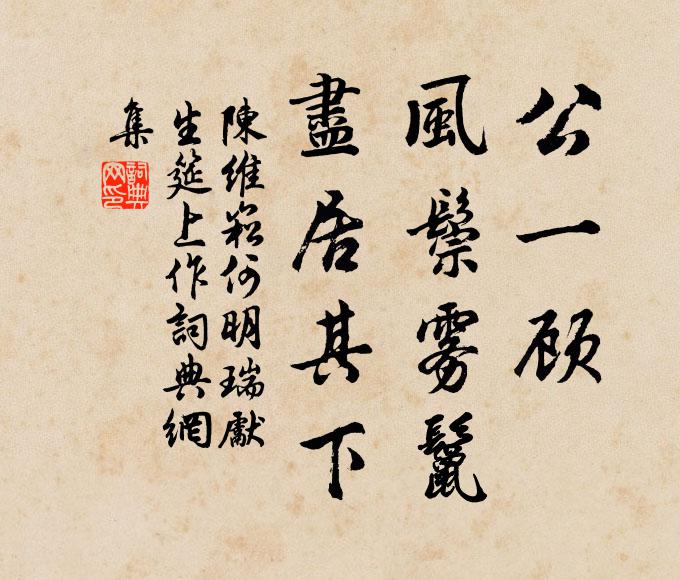 公一顾
風鬃雾鬣
盡居其下
陳維崧何明瑞獻
生筵上作詞典網
集
詞典
网印